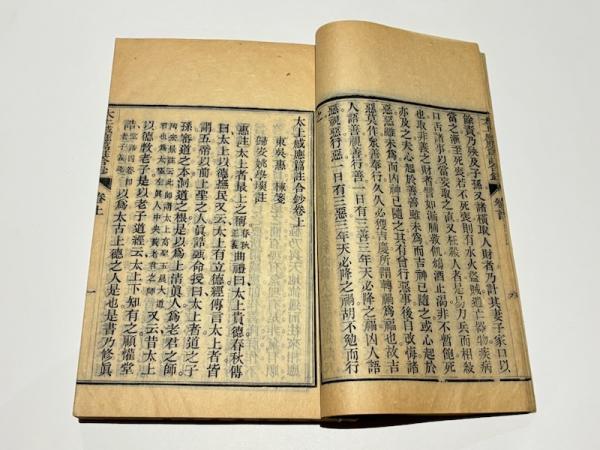 餘責乃殃及子孫又諸橫取人財者乃計其妻子家口以
當之漸至死喪若不死喪則有水火盜賊遺亡器物疾病
口舌諸事以當妄取之直又枉殺人者是易刀兵而相殺
也取非義之財者譬如漏脯救飢鴆酒止渴非不暫飽死
亦及之夫心起於善善雖未為而吉神已隨之或心起於
惡惡雖未為而凶神已隨之其有曾行惡事後自改悔諸
惡莫作衆善奉行久久必獲吉慶所謂轉禍為福也故吉
人語善視善行善一日有三善三年天必降之福凶人語
惡視惡行惡一日有三惡三年天必降之禍胡不勉而行
之
太上感應篇註合鈔卷上
東吳惠 棟箋
歸安姚學塽註
惠註太上者最上之稱春秋正義曲禮曰太上貴德春秋傳
曰太上以德撫民又云太上有立德經傳言太上者皆
謂五帝以前上聖之人眞誥命授曰太上者道之子
孫審道之本洞道之根是以為上清眞人為老君之師
又云昔太上
以德教老子是以老子道經云太上下知有之顧懽堂
誥以為太古上德之人是也是書乃修眞
卷上